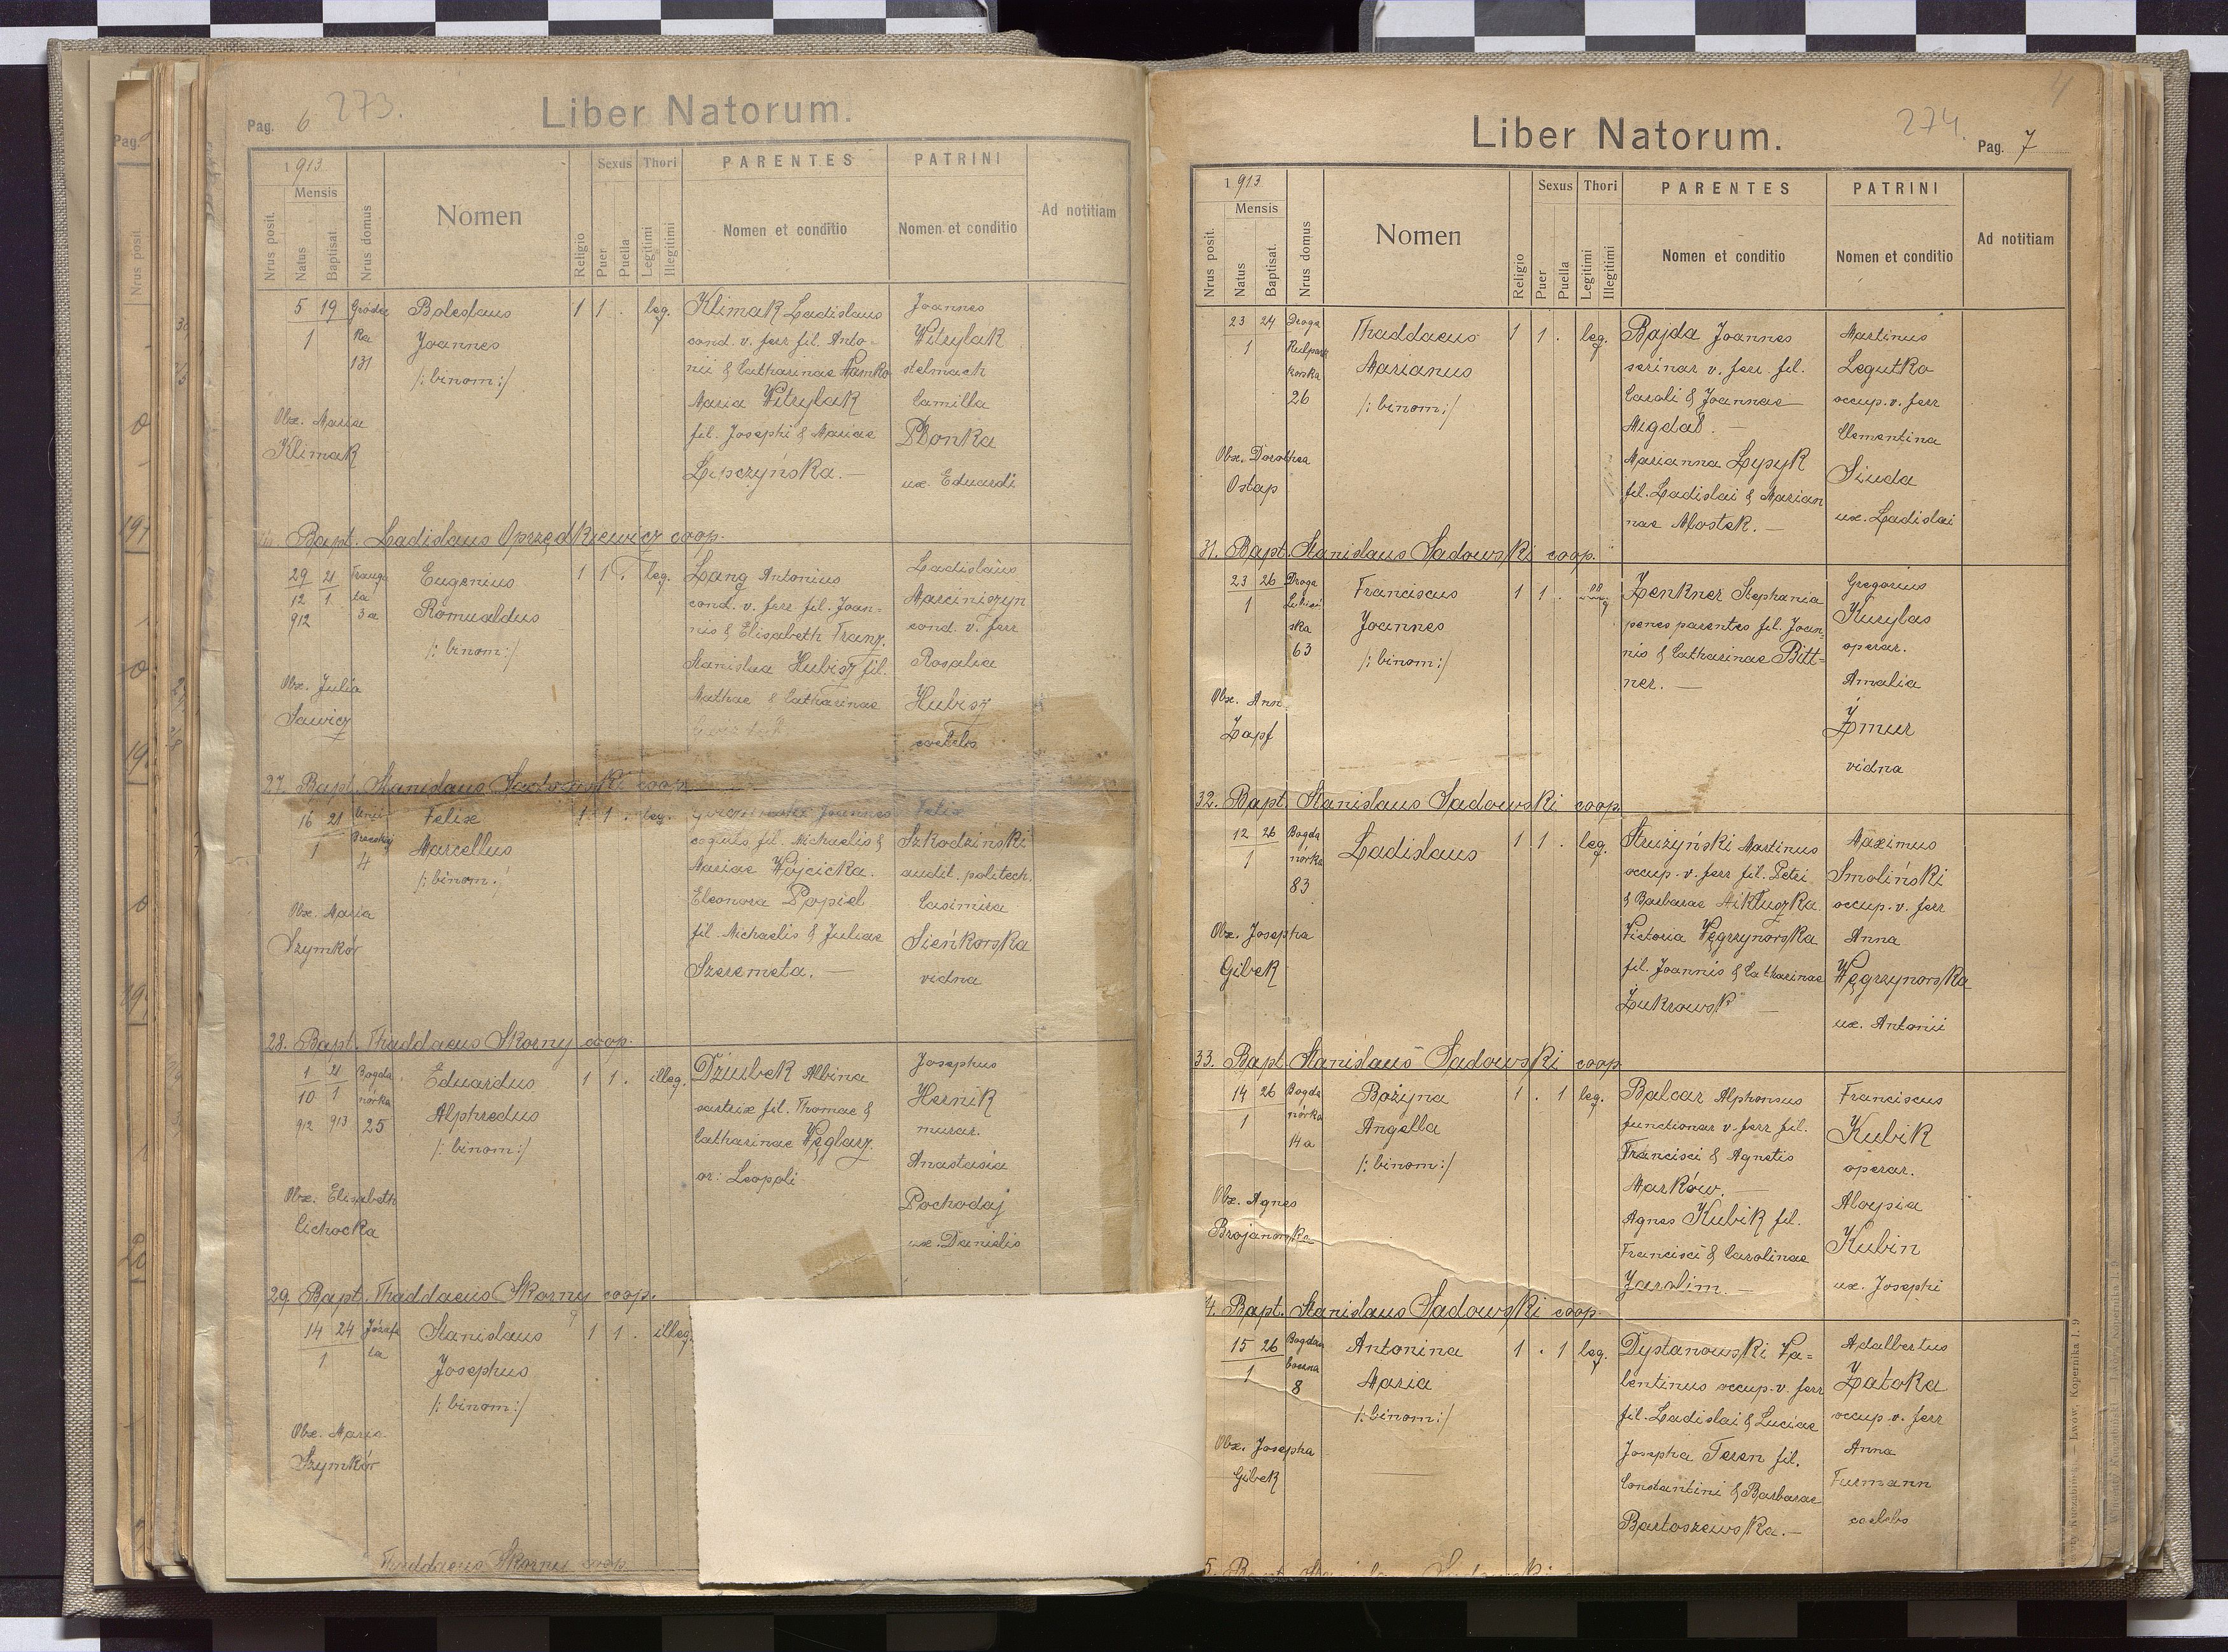 Pag. 6
273.
Liber Natorum.
1913
Mensis
Nrus posit.
Natus
Baptisat.
Nrus domus
Nomen
Religio
Sexus
Puer
Puella
Thori
Legitimi
Illegitimi
PARENTES
Nomen et conditio
PATRINI
Nomen et conditio
Ad notitiam
5 19
1
131
Boleslaus
Joannes
/: binom:/
1 1 . leg.
Klimak Ladislaus
cond. v. ferr fil. Anto-
nii & Catharinae
Maria Witrylak
fil. Josephi & Mariae
Lipczyńska.—
Joannes
Witrylak
stelmach
Camilla
Płonka
ux. Eduardi
Obx. Maria
Klimak
Bapt. Ladislaus Oprzędkiewicz coop.
29 21
12 1
912
3a
Eugenius
Romualdus
/: binom:/
1 1 . leg.
Lang Antonius
cond. v. ferr fil. Joan=
nis & Elisabeth Tranz.
Stanislaa Hubisz fil.
Mathae & Catharinae
Ladislaus
Marciniszyn
cond. v. ferr
Rosalia
Hubisz
coelebs
Obx. Julia
Sawicz
27. Bapt. Stanislaus Sadowski coop.
16 21
1
4
Felix
Marcellus
/: binom:/
1 1 . leg.
Joannes
fil. Michaelis &
Mariae Wójcicka.
Eleonora Popiel
fil. Michaelis & Juliae
Szeremeta.—
Felix
Szkodziński
audit. politech.
Casimira
Sieńkowska
vidua
Obx. Maria
Szymków
28. Bapt. Thaddaeus Skorny coop.
1 21
10 1
912 913
Bogda
nówka
25
Eduardus
Alphredus
/: binom:/
1 1 . illeg.
Dziubek Albina
sartrix fil. Thomae &
Catharinae Węglarz.
or: Leopoli
Josephus
Hernik
murar.
Anastasia
Pochodaj
ux. Danielis
Obx. Elisabeth
Cichocka
29. Bapt. Thaddaeus Skorny coop.
14 24
1
Józefa
ta
Stanislaus
Josephus
/: binom:/
1 1 . illeg.
Obx. Maria
Szymków
Thaddaeus Skorny coop.
274.
Liber Natorum.
Pag. 7
1913
Mensis
Nrus posit.
Natus
Baptisat.
Nrus domus
Nomen
Religio
Sexus
Puer
Puella
Thori
Legitimi
Illegitimi
PARENTES
Nomen et conditio
PATRINI
Nomen et conditio
Ad notitiam
23 24
1
Droga
Kulpar
kowska
26
Thaddaeus
Marianus
/: binom:/
1 1 . leg.
Bajda Joannes
serinar v. ferr. fil.
Caroli & Joannae
Migdał.—
Marianna Łypyk
fil. Ladislai & Marian
nae Mostek.—
Martinus
Legutko
occup. v. ferr
Clementina
Siuda
ux. Ladislai
Obx. Dorothea
Ostap
31. Bapt. Stanislaus Sadowski coop.
23 26
1
Droga
Lubień
ska
63
Franciscus
Joannes
/: binom:/
1 1 .
Zenkner Stephania
penes parentes fil. Joan
nis & Catharinae Bitt=
ner.—
Gregorius
Kurylas
operar.
Amalia
Żmur
vidua
Obx. Ann.
Zapf
32. Bapt. Stanislaus Sadowski coop.
12 26
1
Bogda
nówka
83
Ladislaus
1 1 . leg.
Strużyński Martinus
occup. v. ferr fil. Petri
& Barbarae Mikłuszka
Victoria Węgrzynowska
fil. Joannis & Catharinae
Żukrowsk
Maximus
Smoliński
occup. v. ferr
Anna
Węgrzynowska
ux. Antonii
Obx. Josepha
Gibek
33. Bapt. Stanislaus Sadowski coop
14 26
1
Bogda
nówka
14a
Bożyna
Angella
/: binom:/
1 . 1 leg.
Balcar Alphonsus
functionar v. ferr fil.
Francisci & Agnetis
Marków.—
Agnes Kubik fil.
Francisci & Carolinae
Jarolim.—
Franciscus
Kubik
operar.
Aloysia
Kubin
ux. Josephi
Obx. Agnes
Brojanowska
4. Bapt. Stanislaus Sadowski coop.
15 26
1
8
Antonina
Maria
/: binom:/
1 . 1 leg.
Dystanowski Va=
lentinus occup. v. ferr
fil. Ladislai & Luciae
Josepha Teren fil.
Constantini & Barbarae
Bartoszewska.—
Adalbertus
Zatoka
occup. v. ferr
Anna
Furmann
coelebs
Obx. Josepha
Gibek
5. Bapt.
Lwów, Kopernika 1. 9